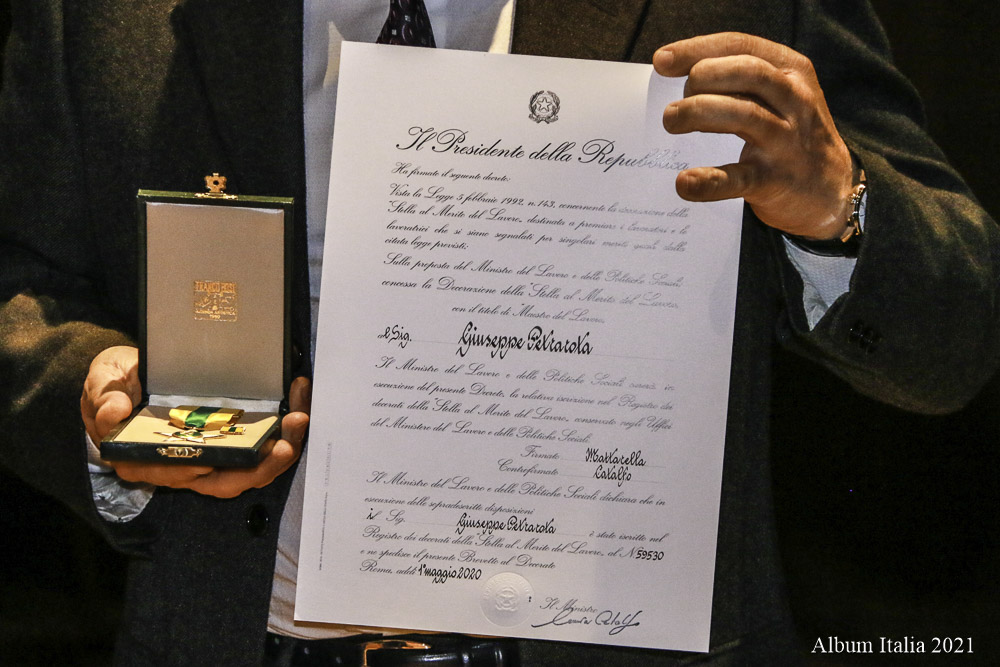 Il Presidente della Repubblica
Ha firmato il seguente decreto:
Vista la Legge 5 febbraio 1992, n. 143, concernente la
"Stella al Merito del Lavoro, destinata a premiare i lavoratori e le
lavoratrici che si siano segnalati per singolari meriti dalla
citata legge previsti;
Sulla proposta del Ministro del Lavoro e delle Politiche Sociali
concessa la Decorazione della "Stella al Merito del Lavoro,
con il titolo di "Maestro del Lavoro,
al Sig. Giuseppe Petrarota
Il Ministro del Lavoro e delle Politiche Sociali curerà in
esecuzione del presente Decreto, la relativa iscrizione nel Registro dei
decorati della "Stella al Merito del Lavoro, conservato negli Uffici
del Ministero del Lavoro e delle Politiche Sociali
Firmato Mattarella
Controfirmato Catalfo
Il Ministro del Lavoro e delle Politiche Sociali dichiara che in
esecuzione delle sopradescritte disposizioni
il Sig. Giuseppe Petrarota è stato iscritto nel
Registro dei decorati della "Stella al Merito del Lavoro, al N 59530
e ne spedisce il presente Brevetto al Decorato
Roma, addì 1° maggio 2020
Il Ministro
Album Italia 2021